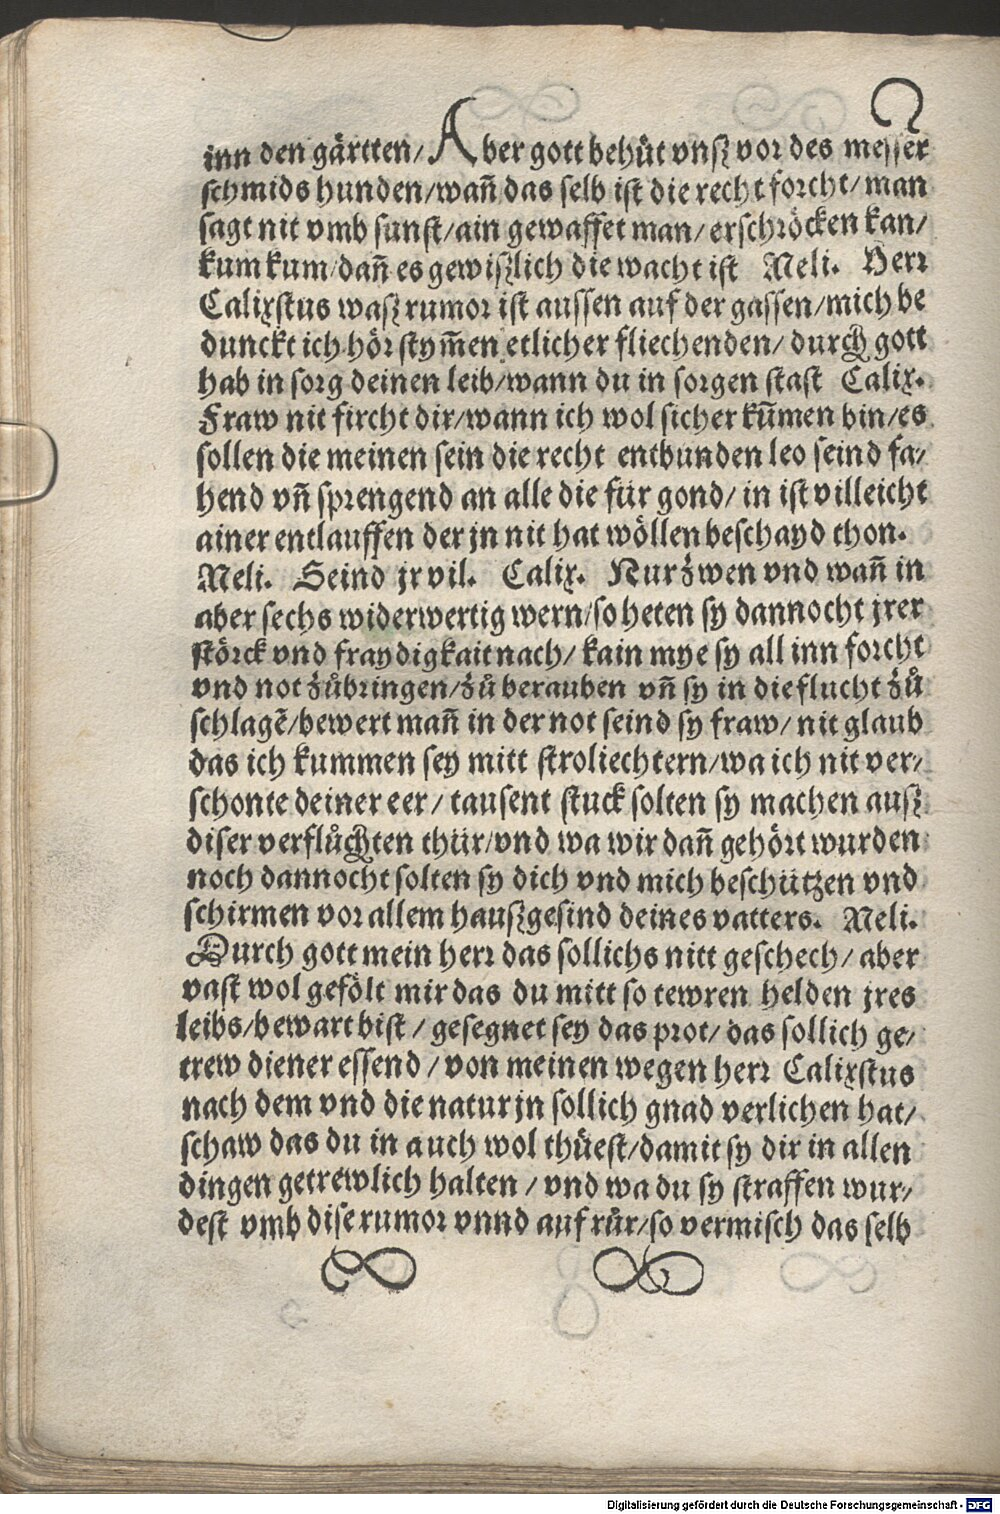 inn den gärtten/ Aber gott behüt vnsz vor des messer
schmids hunden/wañ das selb ist die recht forcht/man
sagt nit vmb sunst/ain gewaffet man/erschröcken kan/
kum kum/dañ es gewiszlich die wacht ist Meli. Herr
Calixstus wasz rumor ist aussen auf der gassen/mich be
dunckt ich hör stym̃en etlicher fliechenden/durch gott
hab in sorg deinen leib/wann du in sorgen stast Calix.
Fraw nit fircht dir/wann ich wol sicher kum̃en bin/es
sollen die meinen sein die recht entbunden leo seind fa/
hend vñ sprengend an alle die für gond/in ist villeicht
ainer entlauffen der jn nit hat wöllen beschayd thon.
Meli. Seind jr vil. Calix. Nur zwen vnd wañ in
aber sechs widerwertig wern/so heten sy dannocht jrer
störck vnd fraydigkait nach/kain mye sy all inn forcht
vnd not zůbringen/zů berauben vñ sy in die flucht zů
schlagẽ/bewert mañ in der not seind sy fraw/nit glaub
das ich kummen sey mitt stroliechtern/wa ich nit ver/
schonte deiner eer/tausent stuck solten sy machen ausz
diser verflůchten thür/vnd wa wir dañ gehört wurden
noch dannocht solten sy dich vnd mich beschützen vnd
schirmen vor allem hauszgesind deines vatters. Meli.
Durch gott mein herr das sollichs nitt geschech/aber
vast wol gefölt mir das du mitt so tewren helden jres
leibs/bewart bist/gesegnet sey das prot/das sollich ge/
trew diener essend/von meinen wegen herr Calixstus
nach dem vnd die natur jn sollich gnad verlichen hat/
schaw das du in auch wol thüest/damit sy dir in allen
dingen getrewlich halten/vnd wa du sy straffen wur/
dest vmb dise rumor vnnd aufrůr/so vermisch das selb
Digitalisierung gefördert durch die Deutsche Forschungsgemeinschaft - DFG